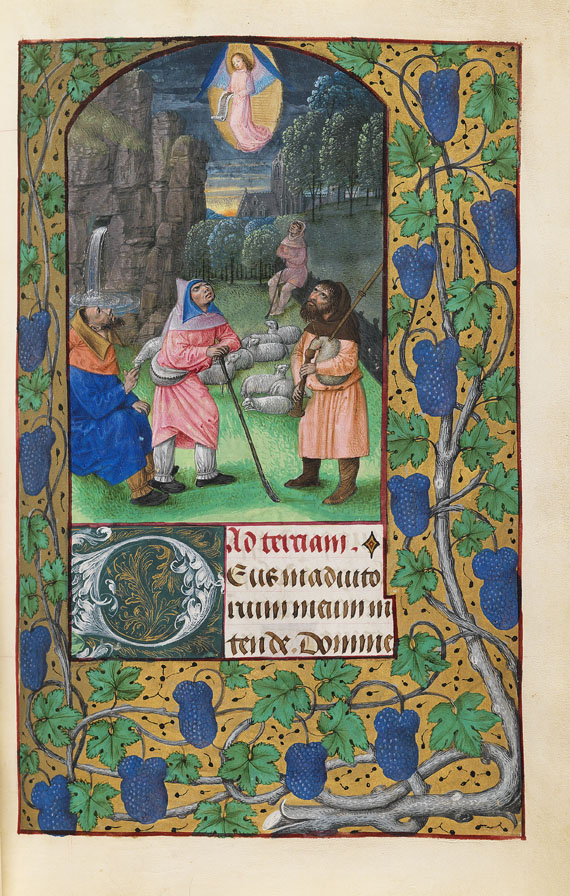 Ad terciam.
Deus in adiuto
rium meum in
tende. Domine